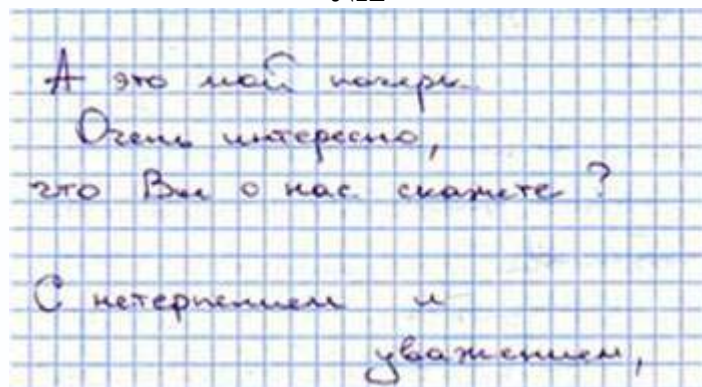 А это мой почерк.
Очень интересно,
что Вы о нас скажете?
С нетерпением и
уважением,